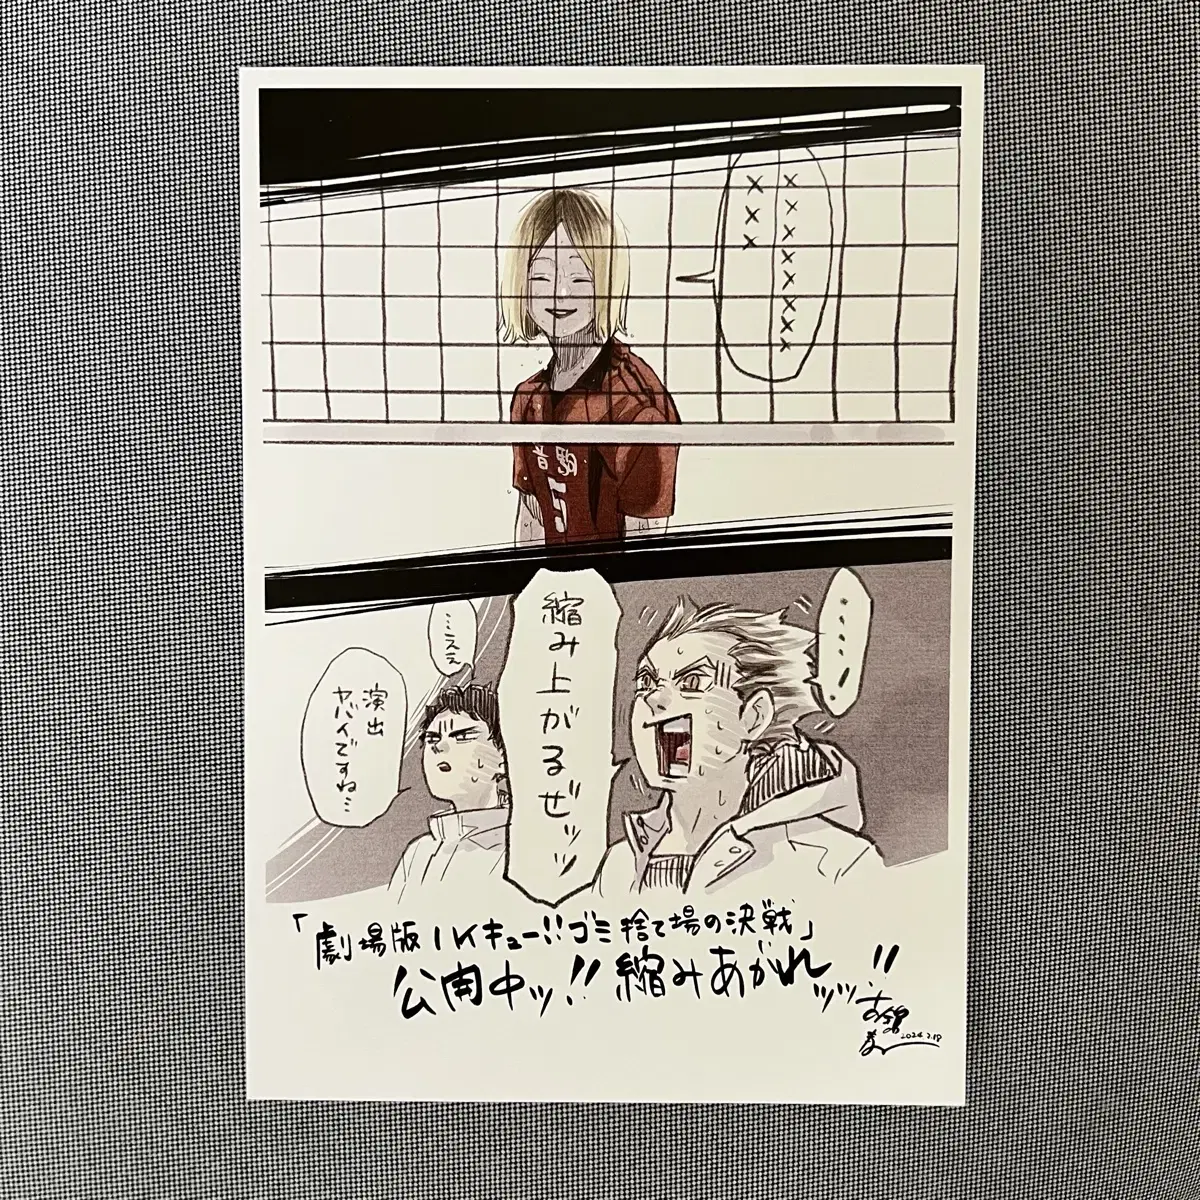 ×××××××××
×××
音駒
5
‥‥!
縮み上がるぜッッ
…こええ
演出
ヤバイですね…
「劇場版ハイキュー!!ゴミ捨て場の決戦」
公開中ッ!!縮みあがれッッ!!
古舘春一
2024.2.18